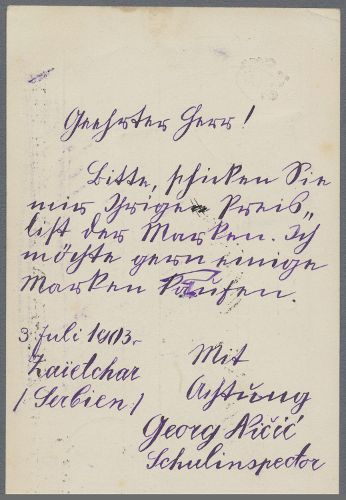 Geehrter Herr!
Bitte, schicken Sie
mir Ihrigen Preis„
list der Marken. Ich
möchte gern einige
Marken kaufen.
3 Juli 1903.
Zaïetchar
/Serbien/
Mit
Achtung
Georg Kičić
Schulinspector